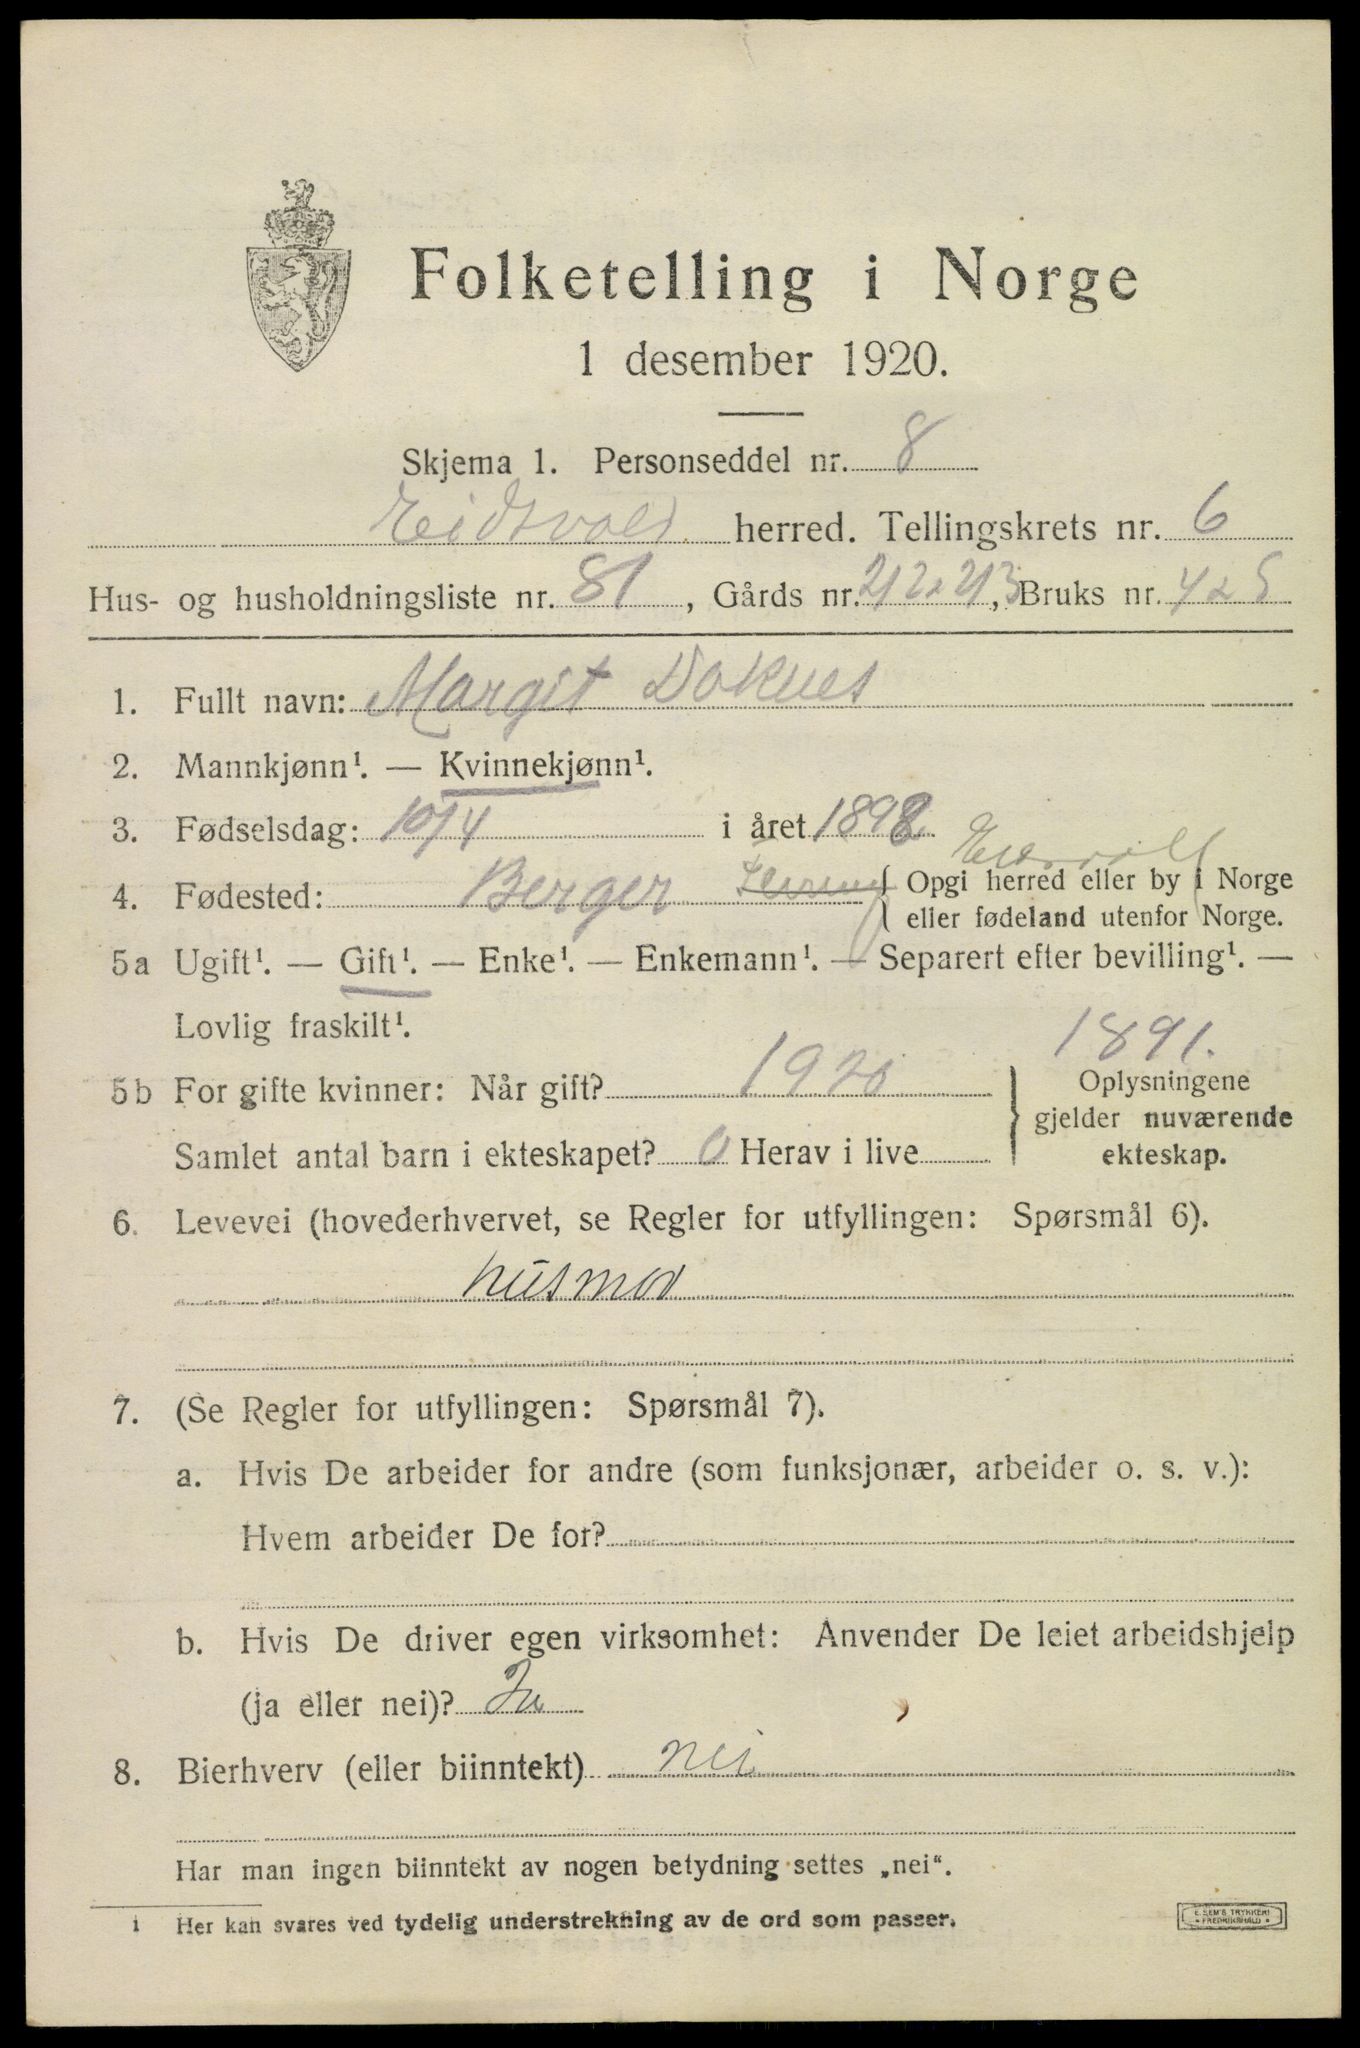 Folketelling i Norge
1 desember 1920.
Skjema 1. Personseddel nr. 8
Eidsvold herred. Tellingskrets nr. 6
Hus- og husholdningsliste nr. 81, Gårds nr. 212 & 213, Bruks nr. 4 & 5
1. Fullt navn: Margit Doknes
2. Mannkjønn¹. — Kvinnekjønn¹.
3. Fødselsdag: 10/4 i året 1892
Eidsvoll
4. Fødested: Berger { Opgi herred eller by i Norge
eller fødeland utenfor Norge.
5a Ugift¹. — Gift¹. — Enke¹. — Enkemann¹. — Separert efter bevilling¹. —
Lovlig fraskilt¹.
1891.
5b For gifte kvinner: Når gift? 1920 } Oplysningene
gjelder nuværende
Samlet antal barn i ekteskapet? 0 Herav i live
ekteskap.
6. Levevei (hovederhvervet, se Regler for utfyllingen: Spørsmål 6).
husmor
7. (Se Regler for utfyllingen: Spørsmål 7).
a. Hvis De arbeider for andre (som funksjonær, arbeider o. s. v.):
Hvem arbeider De for?
b. Hvis De driver egen virksomhet: Anvender De leiet arbeidshjelp
(ja eller nei)? Ja
8. Bierhverv (eller biinntekt) nei
Har man ingen biinntekt av nogen betydning settes „nei“.
1 Her kan svares ved tydelig understrekning av de ord som passer.
E. SEM'S TRYKKERI
FREDRIKSHALD